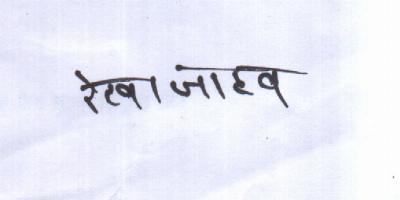 रेखा जाटव